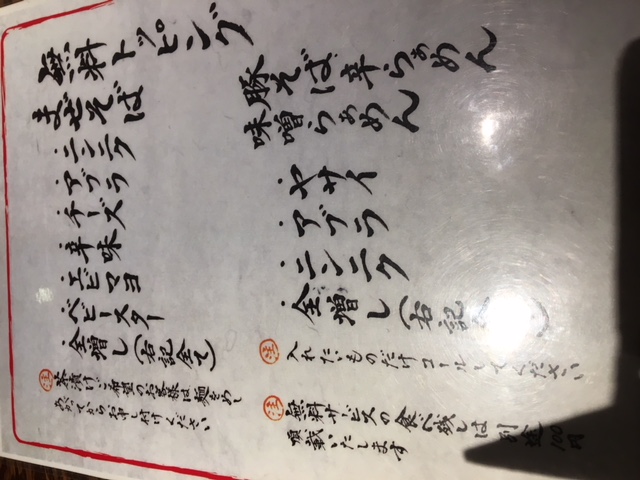 無料トッピング
まぜそば
・ニンニク
・アブラ
・チーズ
・辛味
・エビマヨ
・ベビースター
・全増し(右記全て)
注 茶漬けご希望のお客様は麺をめし
あがってからお申し付けください
豚そば・辛らぁめん
味噌らぁめん
・ヤサイ
・アブラ
・ニンニク
・全増し(右記
注 入れたいものだけコールしてください
注 無料サービスの食べ残しは別途100円
頂戴いたします